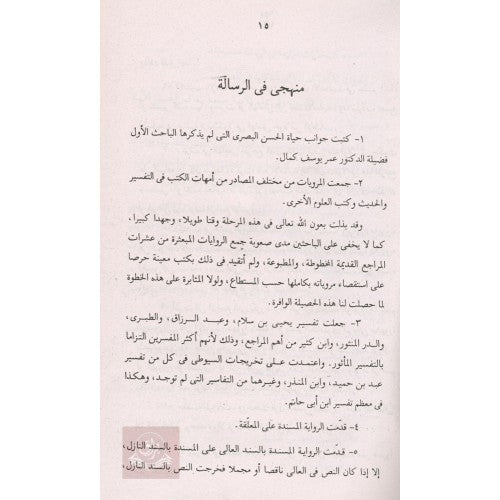 ١٥
منهجى فى الرسالة
١- كتبت جوانب حياة الحسن البصرى التى لم يذكرها الباحث الأول
فضيلة الدكتور عمر يوسف كمال.
٢- جمعت المرويات من مختلف المصادر من أمهات الكتب فى التفسير
والحديث وكتب العلوم الأخرى.
وقد بذلت بعون الله تعالى فى هذه المرحلة وقتا طويلا، وجهدا كبيرا،
كما لا يخفى على الباحثين مدى صعوبة جمع الروايات المبعثرة من عشرات
المراجع القديمة المخطوطة، والمطبوعة، ولم أتقيد فى ذلك بكتب معينة حرصا
على استقصاء مروياته بكاملها حسب المستطاع، ولولا المثابرة على هذه الخطوة
لما حصلت لنا هذه الحصيلة الوافرة.
٣- جعلت تفسير يحيى بن سلام، وعبد الرزاق، والطبرى،
والدر المنثور، وابن كثير من أهم المراجع، وذلك لأنهم أكثر المفسرين التزاما
بالتفسير المأثور. واعتمدت على تخريجات السيوطى فى كل من تفسير
عبد بن حميد، وابن المنذر، وغيرهما من التفاسير التى لم توجد، وهكذا
فى معظم تفسير ابن أبى حاتم.
٤- قدمت الرواية المسندة على المعلقة.
٥- قدمت الرواية المسندة بالسند العالى على المسندة بالسند النازل،
إلا إذا كان النص فى العالى ناقصا أو مجملا فخرجت النص بالسند النازل،